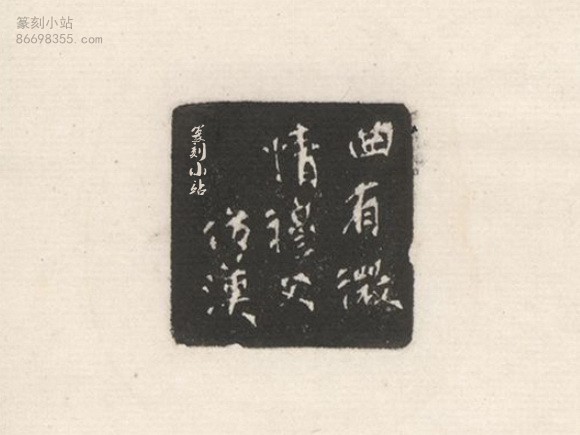 篆刻小站
86698355.com
曲有微
情穆父
仿漢
篆刻小站